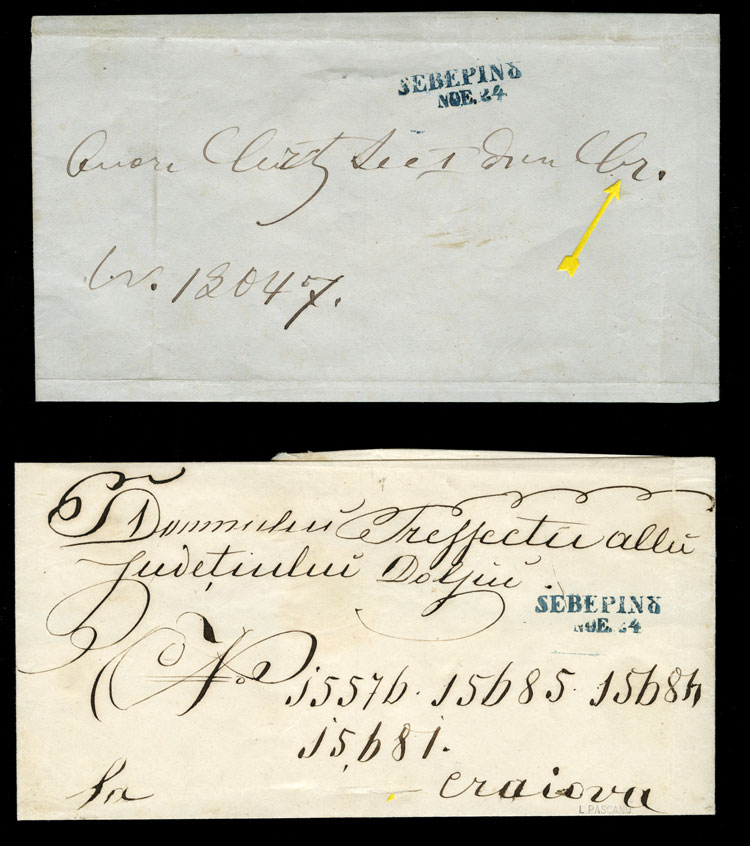 SEBEPINȢ
NOE. 24
dun Cr.
Nr. 13047.
Domnului Preffectu allu
Judeţiului Doljiu
SEBEPINȢ
NOE. 24
No. 15576. 15685. 15684
15681.
La Craiova
L PASCANU